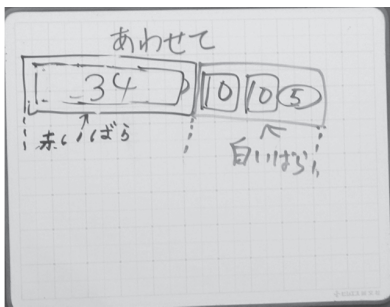 あわせて
34 10 10 5
赤いばら
白いばら